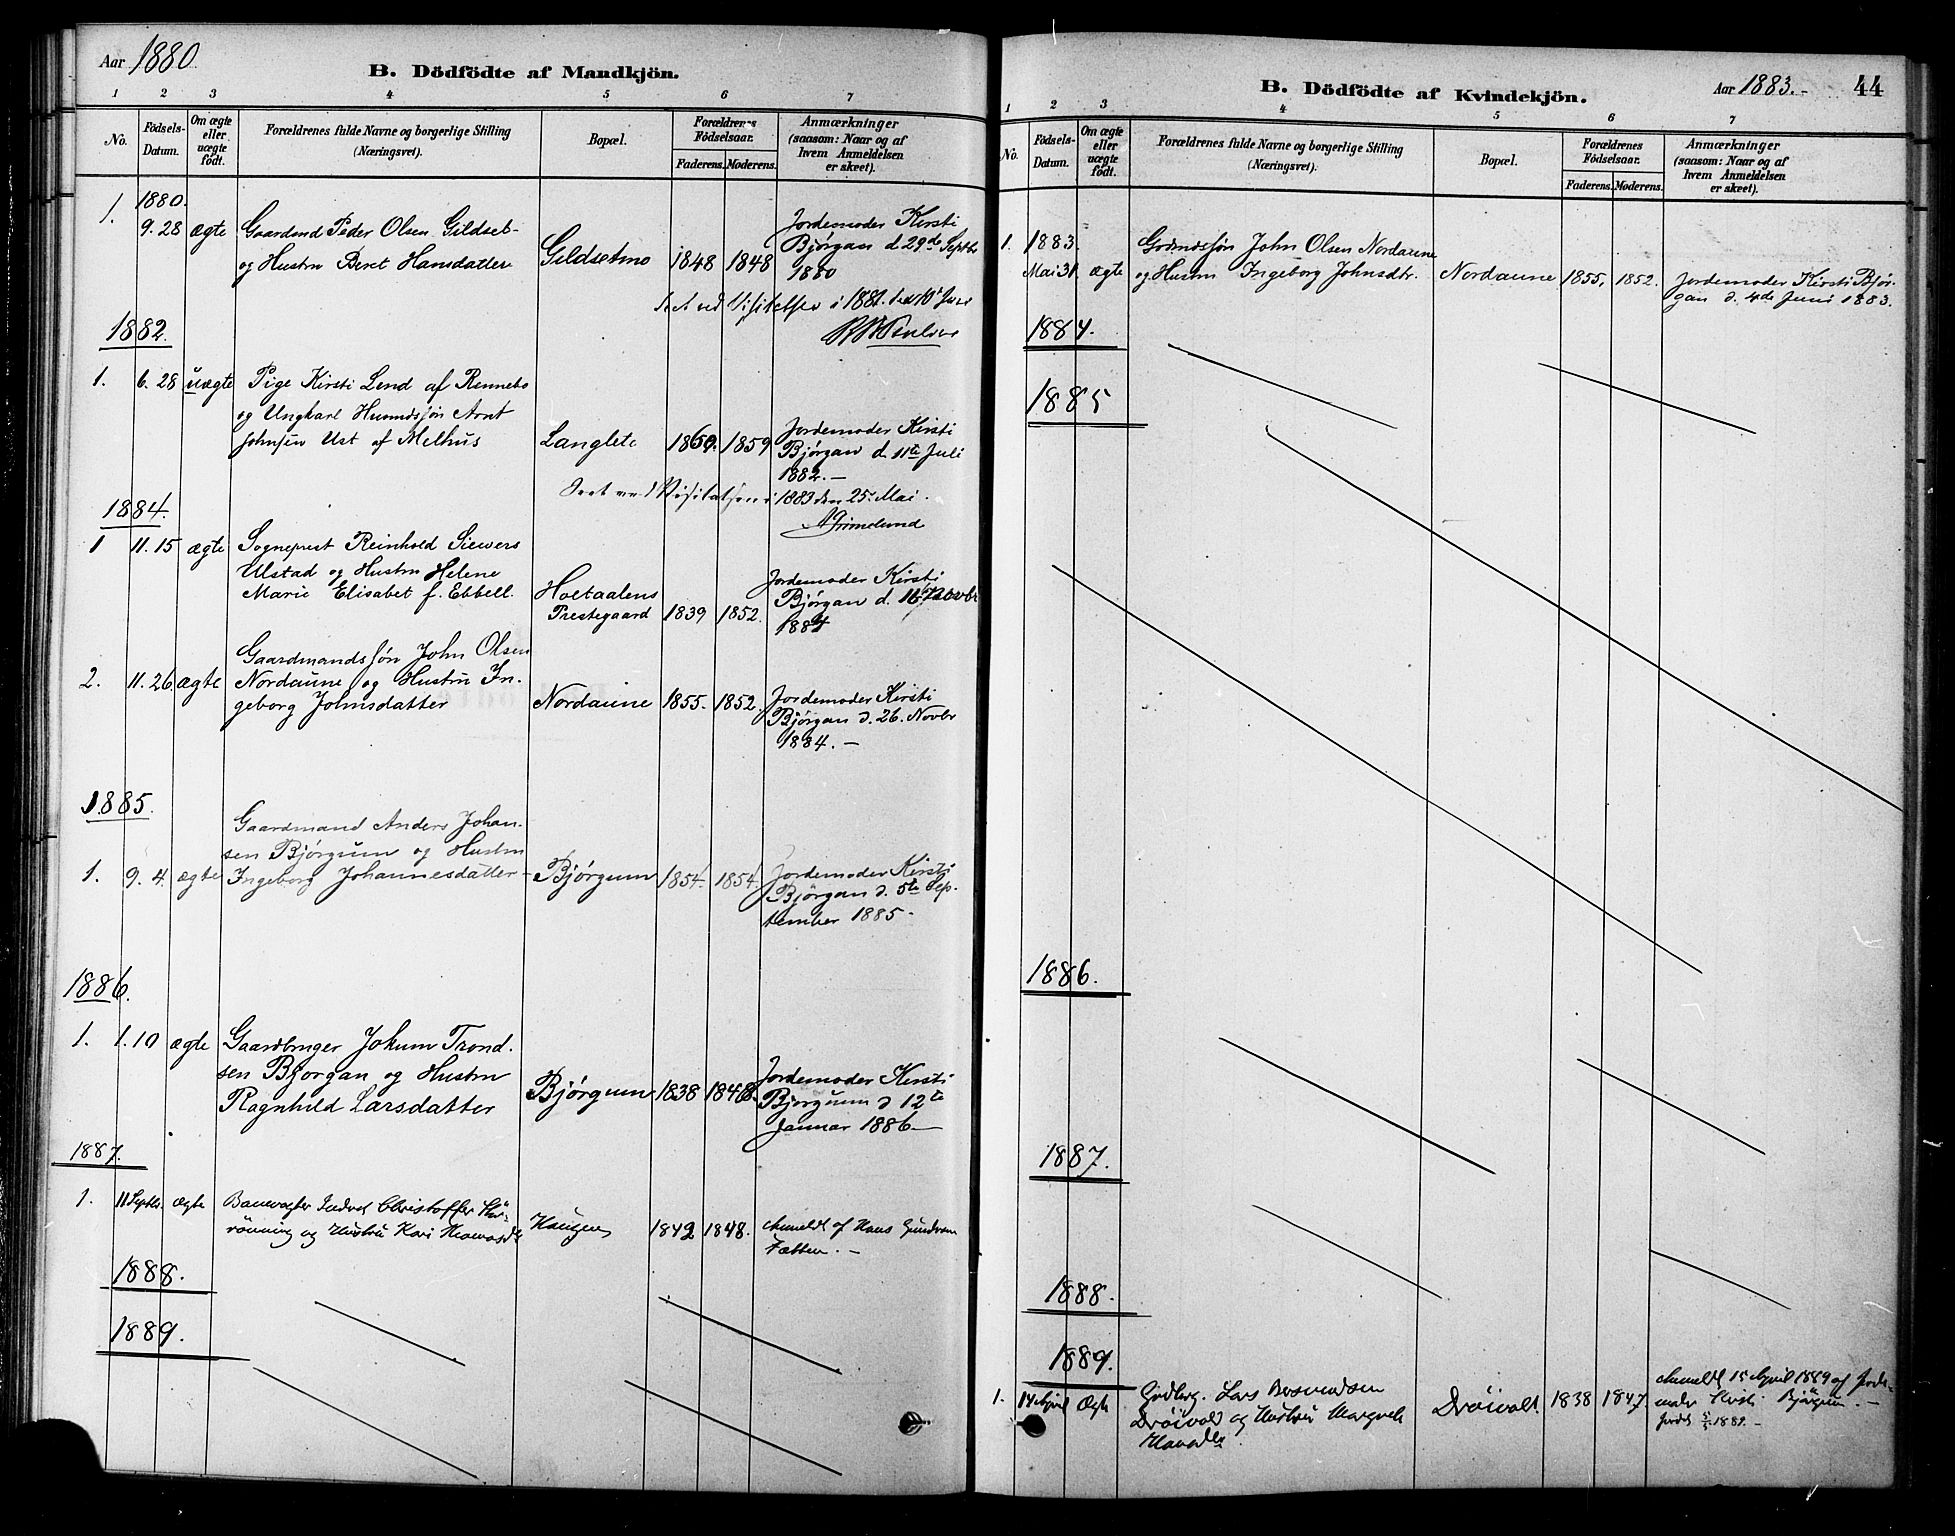 Aar 1880.
B. Dödfödte af Mandkjön.
1 2 3 4 5 6 7
No. Födsels-Datum. Om ægte eller uægte födt. Forældrenes fulde Navne og borgerlige Stilling (Næringsvei). Bopæl. Forældrenes Födselsaar. Faderens. Moderens. Anmærkninger (saasom: Naar og af hvem Anmeldelsen er skeet).
1. 1880.
9. 28 ægte Gaardmd Peder Olsen Gildset-
og Hustru Beret Hansdatter Gildsetmo 1848 1848
Jordemoder Kirsti
Bjørgan d. 29de Septbr
1880
1882.
1. 6. 28 uægte Pige Kirsti Lend af Rennebo
og Ungkarl Husmdssøn Arnt
Johnsen Ust af Melhus Langlete 1860. 1859
Jordemoder Kirsti
Bjørgan d. 11te Juli
1882. —
Seet ved Visitatsen i 1883 den 25. Mai.
Grimelund
1884.
1 11. 15 ægte Sogneprest Reinhold Siewers
Ulstad og Hustru Helene
Marie Elisabet f. Ebbell. Holtaalens
Prestegaard 1839 1852.
Jordemoder Kirsti
Bjørgan d. 16. Novbr
1884
2. 11. 26 ægte Gaardmandssøn John Olsen
Nordaune og Hustru In-
geborg Johnsdatter Nordaune 1855. 1852.
Jordemoder Kirsti
Bjørgan d. 26. Novbr
1884. —
1885.
1. 9. 4. ægte Gaardmand Anders Johan-
sen Bjørgum og Hustru
Ingeborg Johannesdatter Bjørgum 1854. 1854.
Jordemoder Kirsti
Bjørgan d. 5te Sep-
tember 1885.
1886.
1. 1. 10 ægte Gaardbruger Jokum Trond-
sen Bjørgan og Hustru
Ragnhild Larsdatter Bjørgum 1838 1848.
Jordemoder Kirsti
Bjørgum d 12te
Januar 1886 —
1887.
1. 11 Septbr. Ægte Banevogter Christoffer
rönning og Hustru Kari Haugen 1842 1848.
Anmeldt af Hans
1888.
1889.
B. Dödfödte af Kvindekjön.
Aar 1883. 44
1 2 3 4 5 6 7
No. Födsels-Datum. Om ægte eller uægte födt. Forældrenes fulde Navne og borgerlige Stilling (Næringsvei). Bopæl. Forældrenes Födselsaar. Faderens. Moderens. Anmærkninger (saasom: Naar og af hvem Anmeldelsen er skeet).
1. 1883.
Mai 31 ægte Grdmdssøn John Olsen Nordaune
og Hustru Ingeborg Johnsdtr. Nordaune 1855, 1852.
Jordemoder Kirsti Bjør-
gan d. 4de Juni 1883.
1884.
1885
1886.
1887.
1888.
1889.
1. 14 April Ægte Lars Berntsen
Dröivold og Hustru Margrete Dröivold. 1838 1847.
Anmeldt 15 April 1889 af Jorde-
moder Kirsti Bjørgum. —